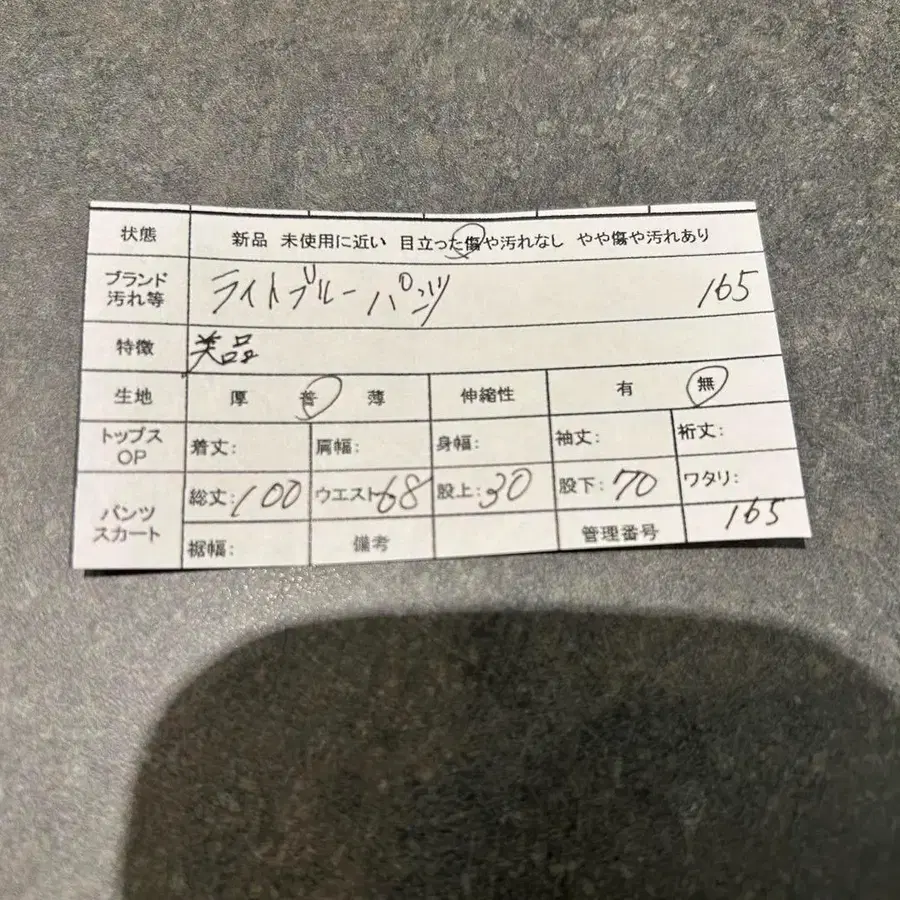 状態 新品 未使用に近い 目立った傷や汚れなし やや傷や汚れあり
ブランド
汚れ等 ライトブルー パンツ 165
特徴 美品
生地 厚 普 薄 伸縮性 有 無
トップス
OP 着丈: 肩幅: 身幅: 袖丈: 裄丈:
パンツ
スカート 総丈:100 ウエスト68 股上:30 股下:70 ワタリ:
裾幅: 備考 管理番号 165